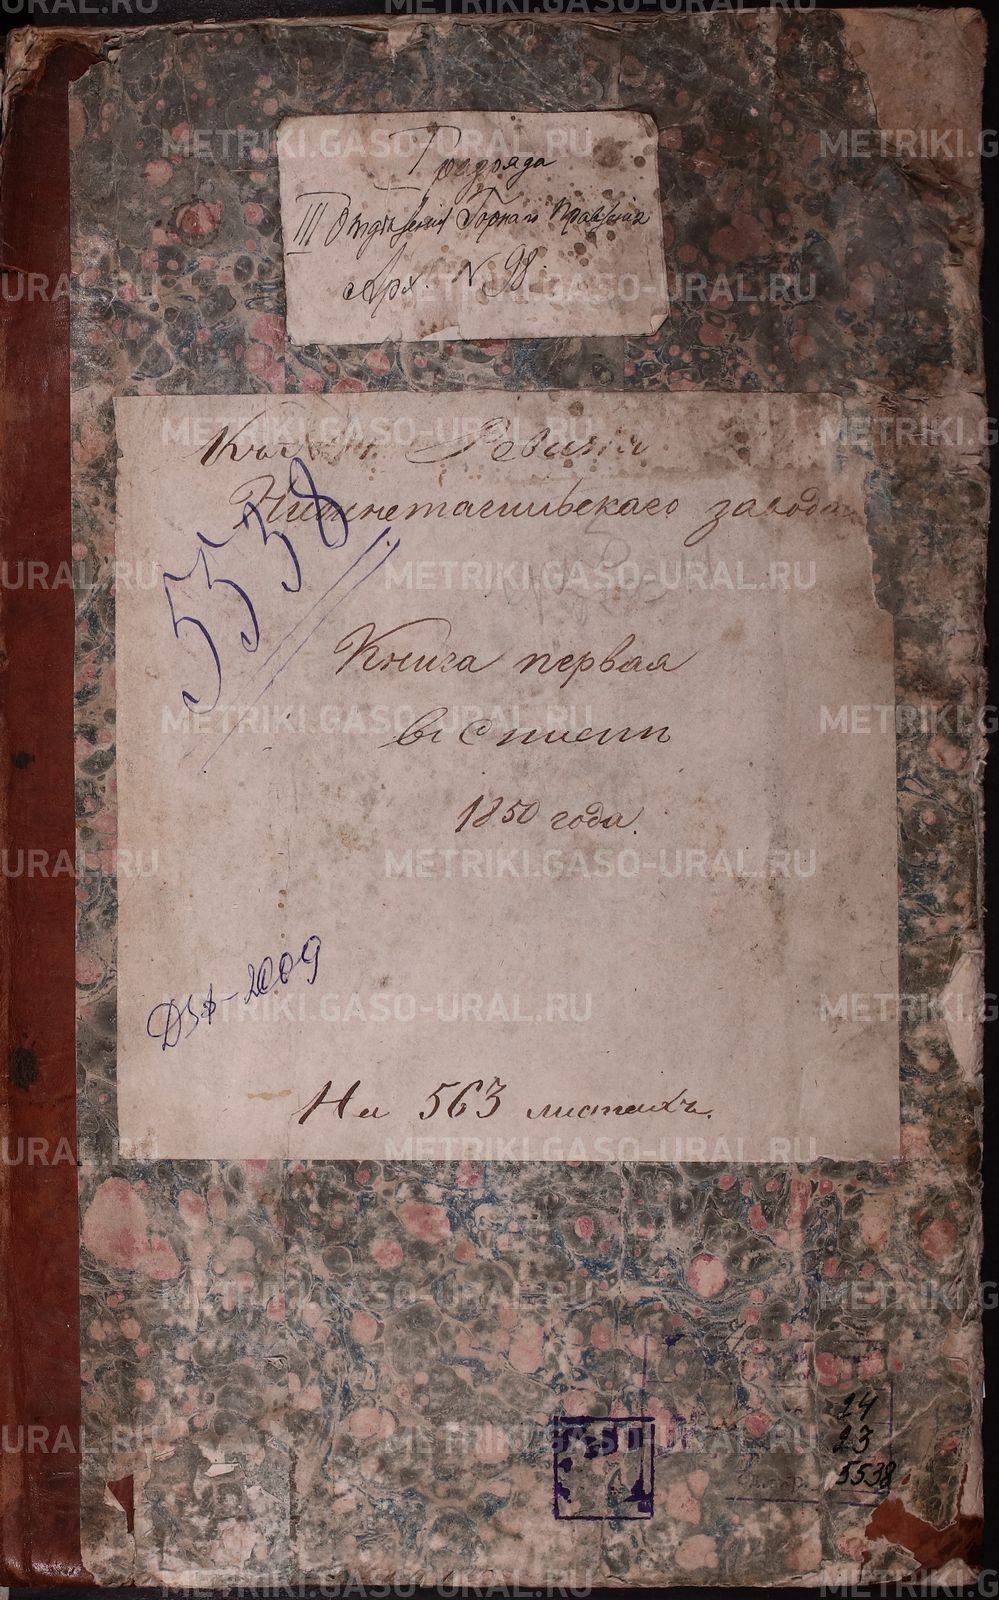 I разряда
III Отделения Горнаго Правления
Арх. № 98.
Ревизия
Нижнетагильскаго завода
5538
Книга первая
1850 года.
2009
На 563 листахъ.
24
23
5538
METRIKI.GASO-URAL.RU